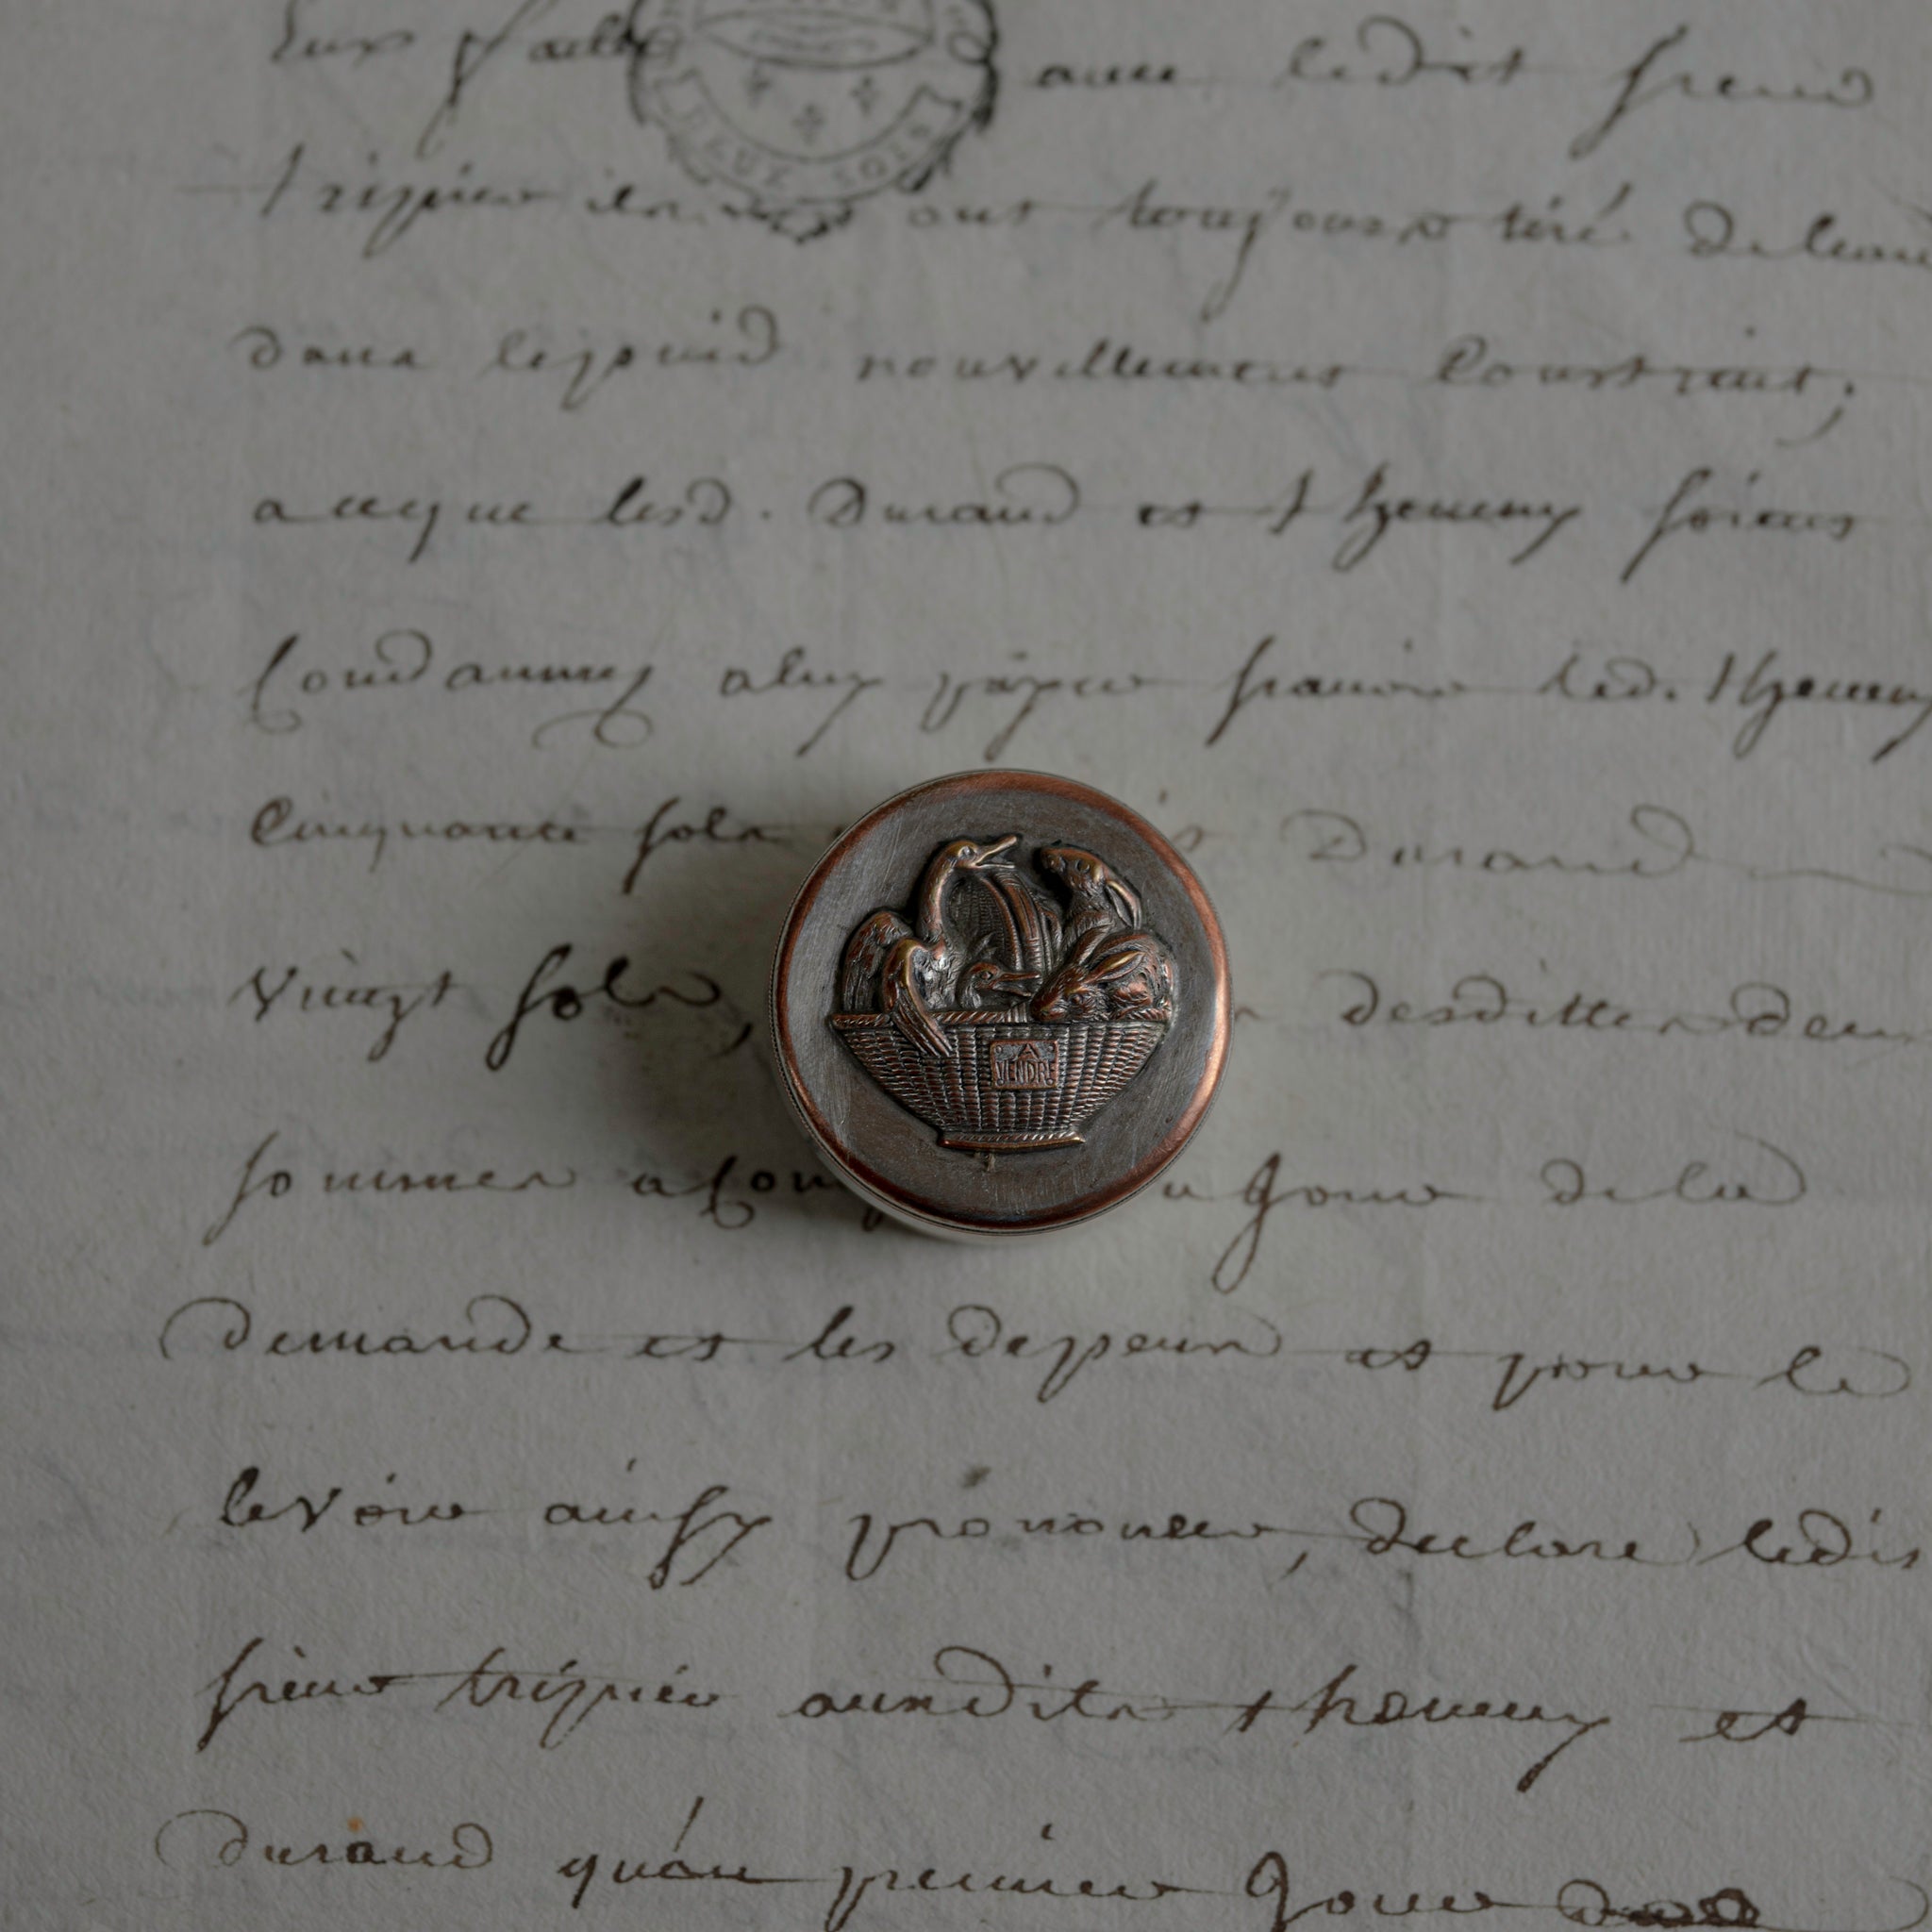 avec ledit sieur
tripier ils ont toujours tiré de leau
dans le puid nouvellement Construit,
a ce que lesd. Durand et theveny soient
Condamnes a luy payer scavoir led. Theveny
Cinquante sols Durand
vingt sols, desdittes deux
sommes a Com jour de la
demande et les depens et pour le
levoir ainsy prononcer, declare ledit
sieur tripier auxdits theveny et
durand quau premier jour
A
VENDRE